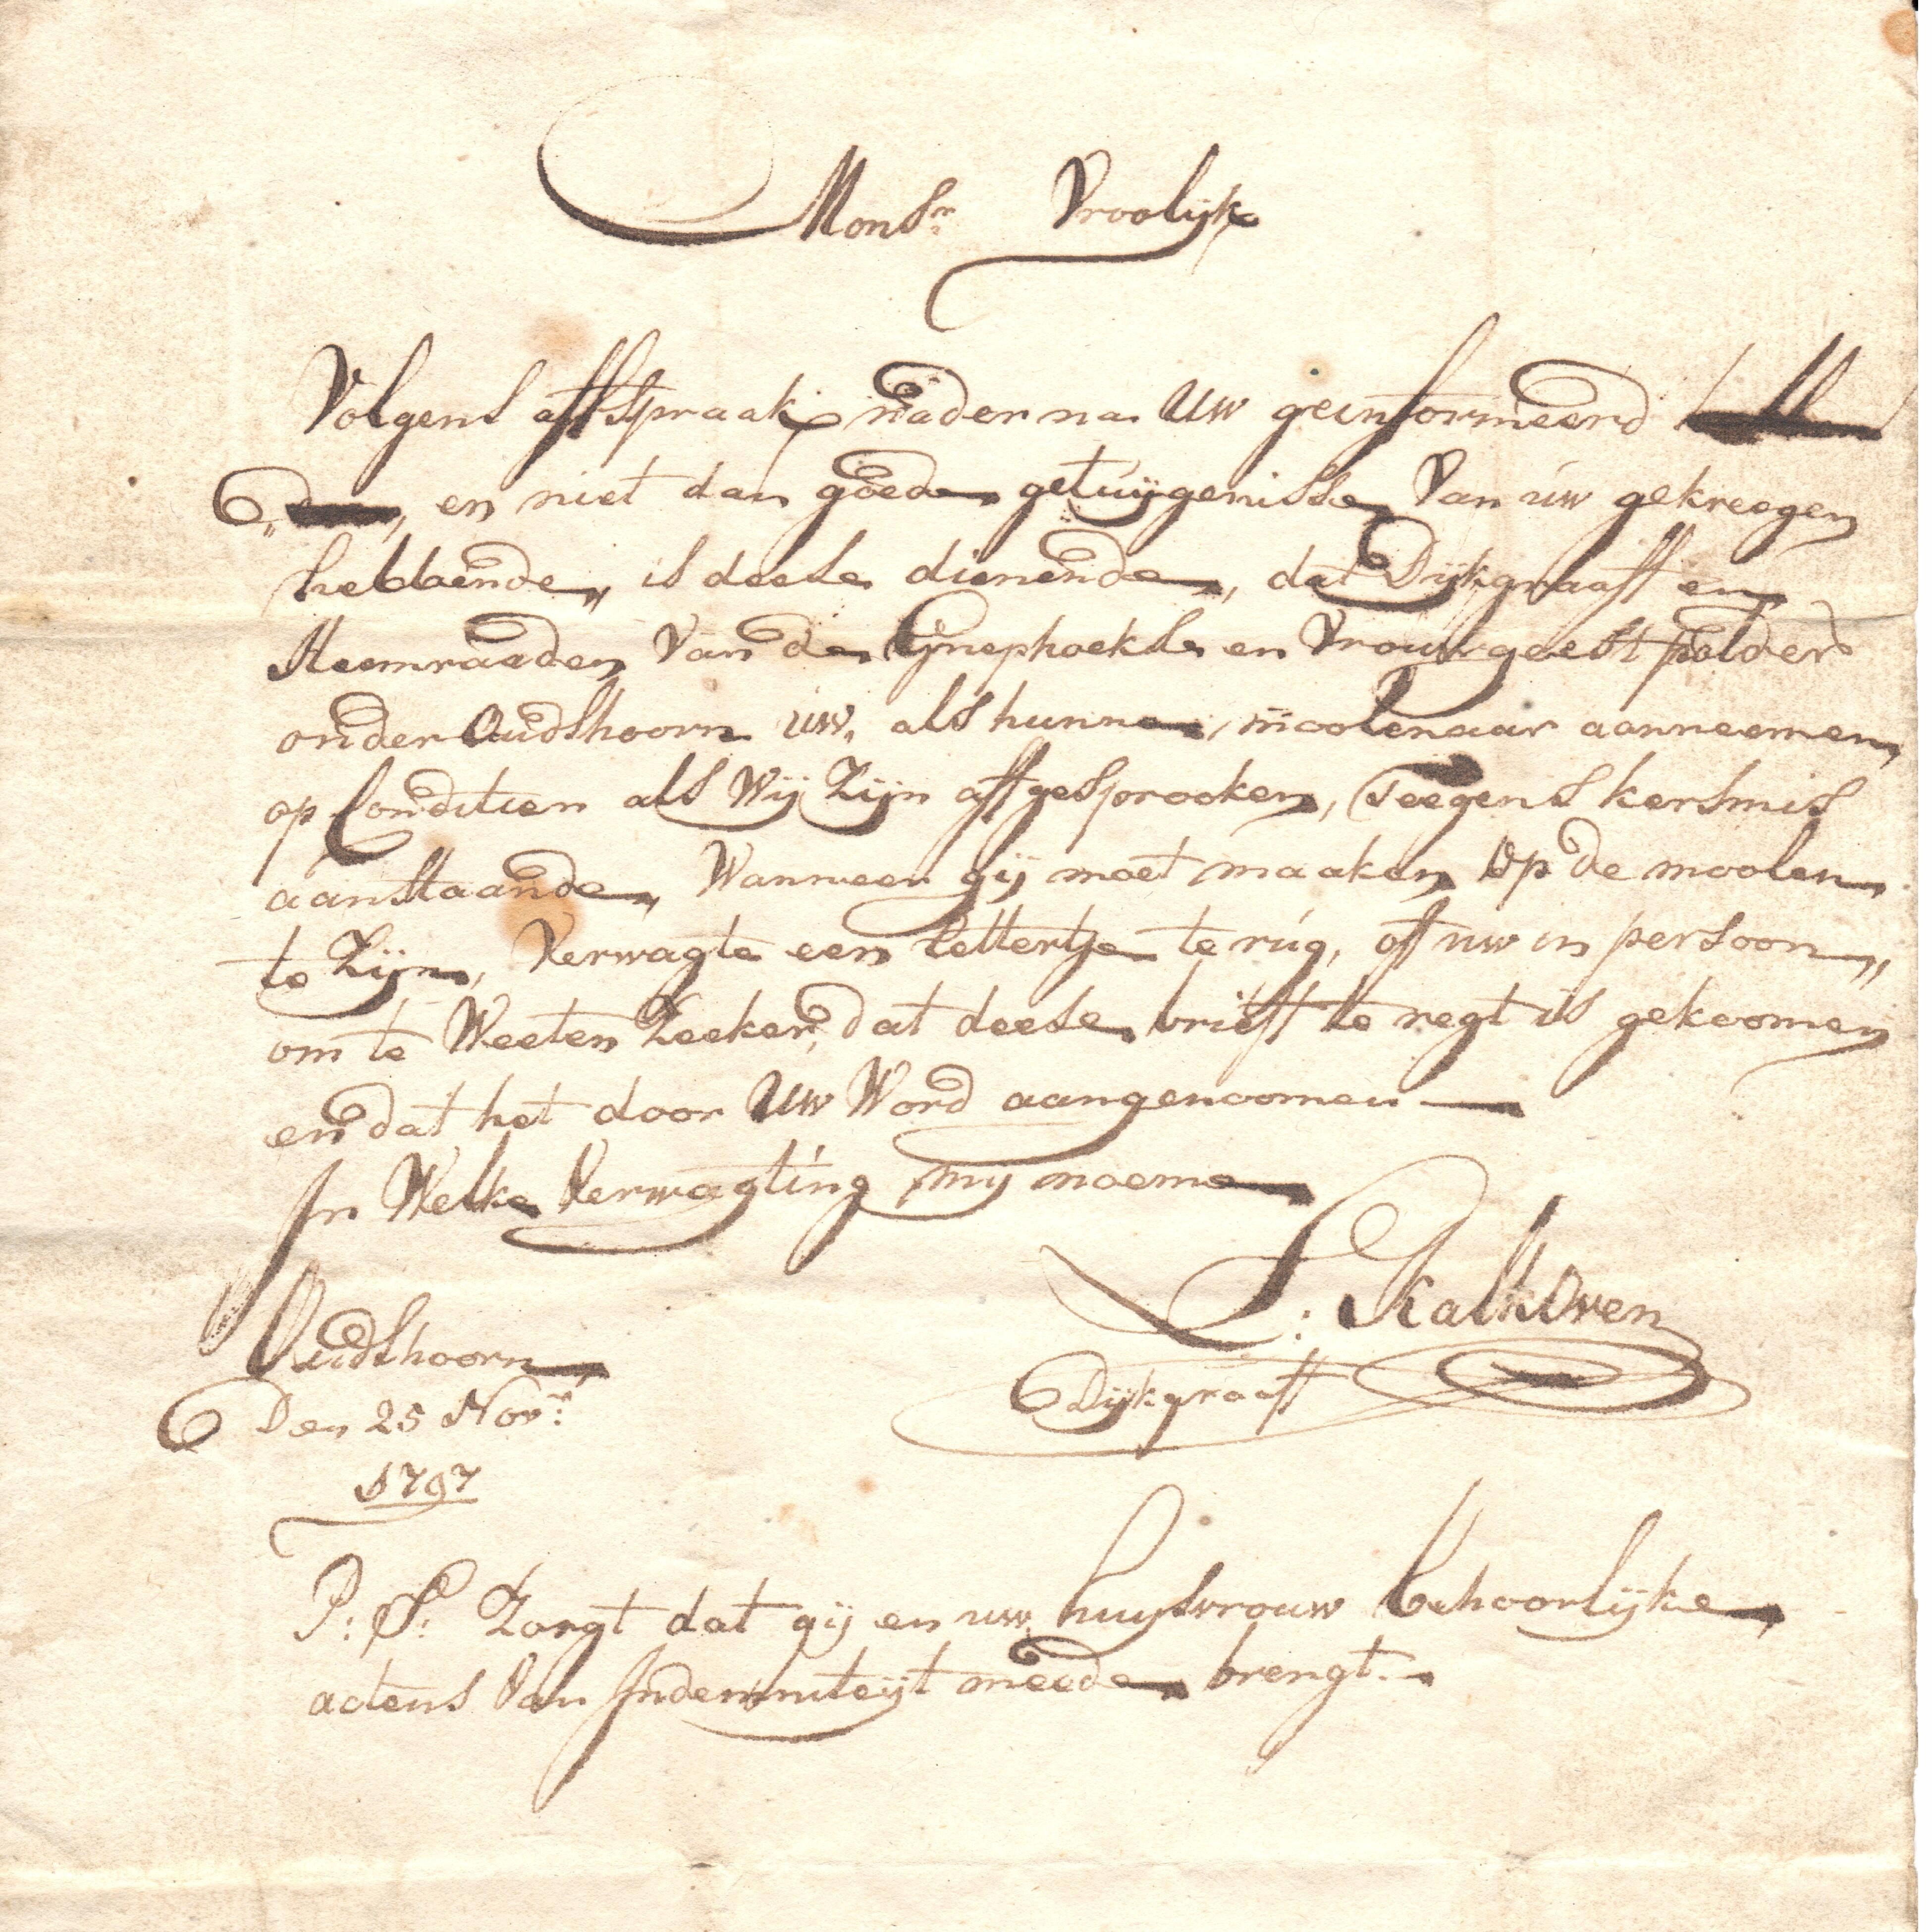 Monsr. Vroolijk
Volgens affspraak nader na Uw geinformeerd
en niet dan goede getuijgenisse Van uw gekreegen
hebbende, is deese dienende, dat Dijkgraaff en
Heemraaden Van de Gnephoekse en Vrouwgeest polders
onder Oudshoorn uw, als hunne, moolenaar aanneemen,
op Conditien als Wij Zijn affgesprooken, teegens kersmis
aanstaande, Wanneer gij moet maaken Op de moolen
te Zijn, Verwagte een lettertje te rúg, off uw in persoon,,
om te Weeten Zeeker, dat deese brieff te regt is gekoomen
en dat het door Uw Word aangenoomen
In Welke Verwagting mij noeme
Kalkoven
Dijkgraaff
Oudshoorn
Den 25 Novr:
1797
P: S: Zorgt dat gij en uw huysvrouw behoorlijke
actens Van Indemniteijt meede brengt.